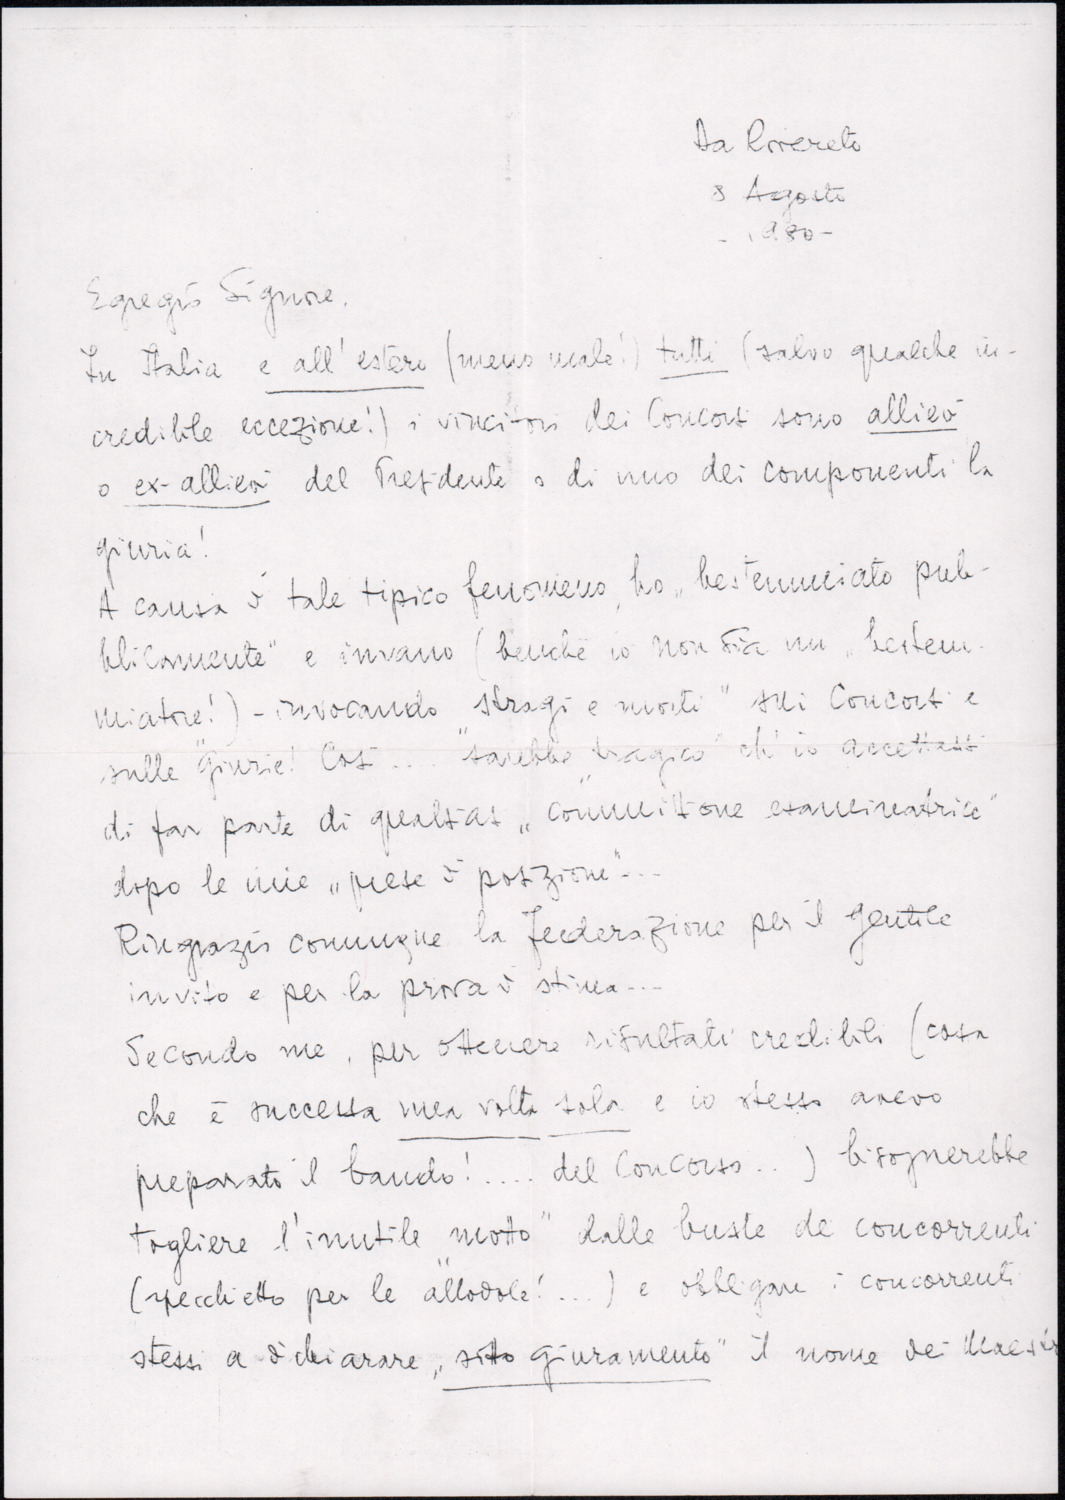 Da Rovereto
8 Agosto
- 1980 -
Egregio Signore.
In Italia e all'estero (meno male!) tutti (salvo qualche in-
credibile eccezione!) i vincitori dei Concorsi sono allievi
o ex-allievi del Presidente o di uno dei componenti la
giuria!
A causa di tale tipico fenomeno, ho „bestemmiato pub-
blicamente" e invano (benchè io non sia un „bestem-
miatore!) - invocando "stragi e morti" sui Concorsi e
sulle "giurie! Così .... "sarebbe tragico" ch'io accettassi
di far parte di qualsiasi „commissione esaminatrice"
dopo le mie „prese di posizione"...
Ringrazio comunque la Federazione per il gentile
invito e per la prova di stima...
Secondo me, per ottenere risultati credibili (cosa
che è successa una volta sola e io stesso avevo
preparato il bando!.... del Concorso..) bisognerebbe
togliere l'inutile "motto" dalle buste dei concorrenti
(specchietto per le allodole!...) e obbligare i concorrenti
stessi a dichiarare „sotto giuramento" il nome dei Maestri